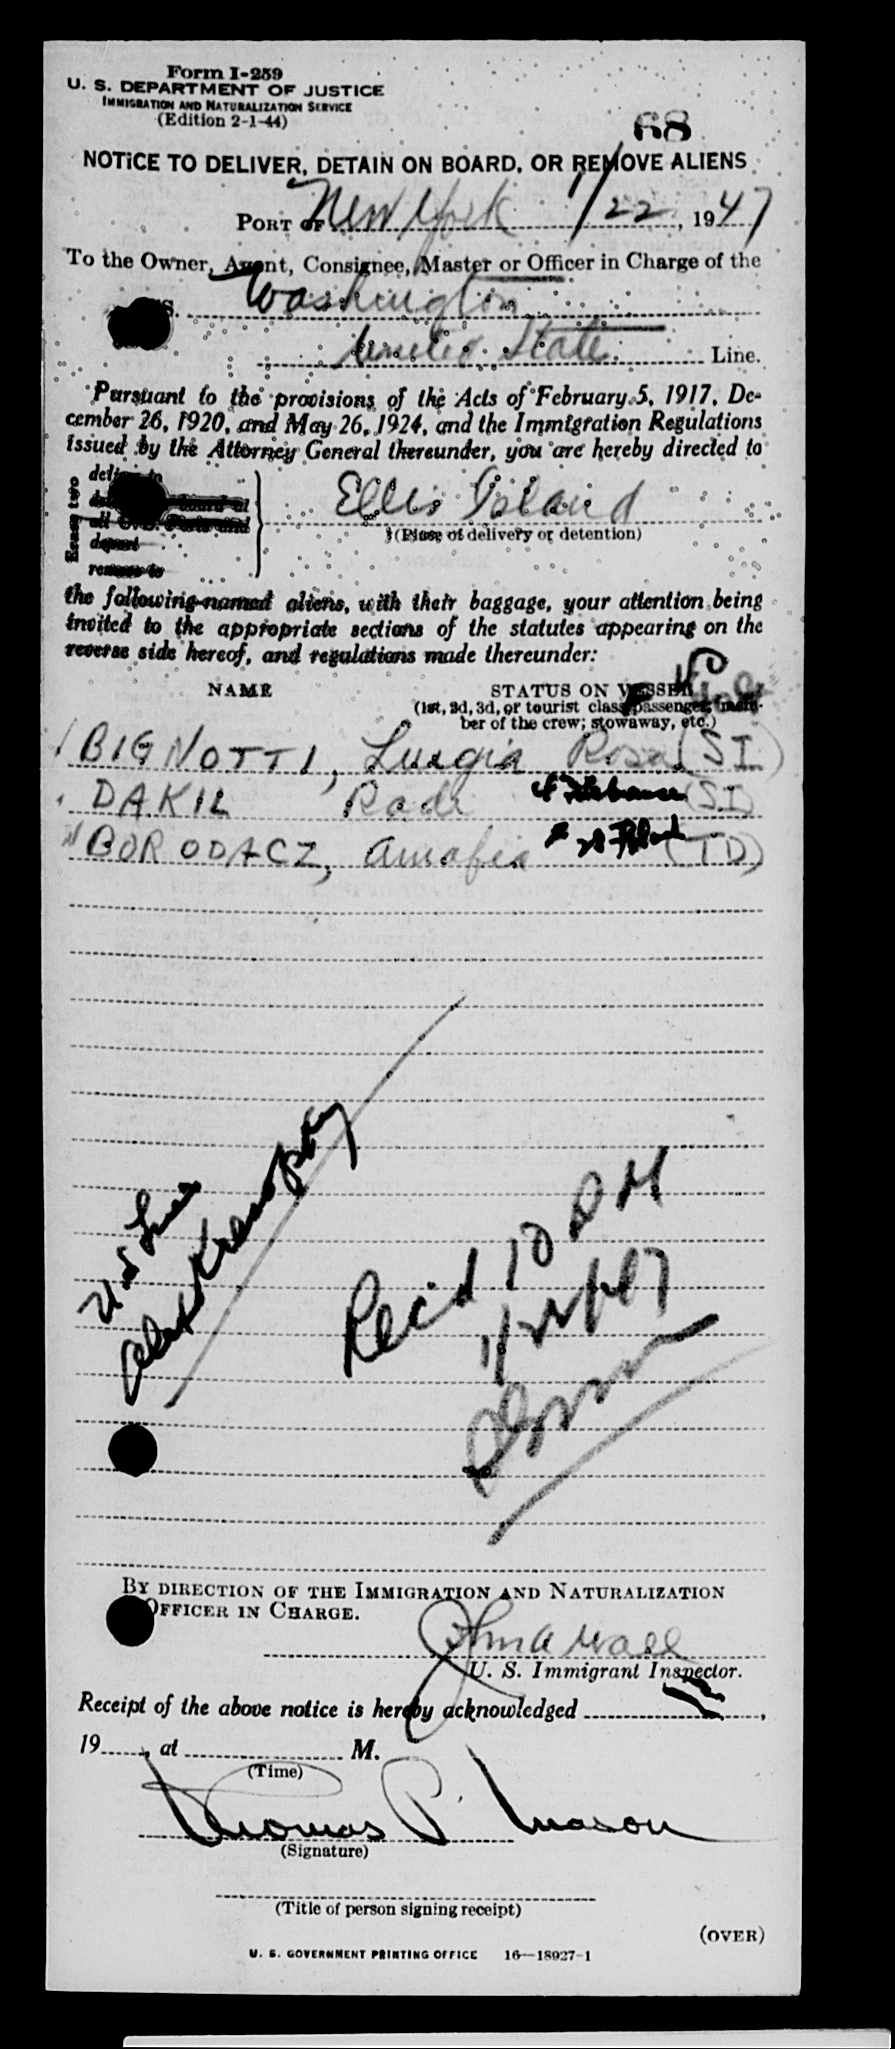 Form I-259
U. S. DEPARTMENT OF JUSTICE
IMMIGRATION AND NATURALIZATION SERVICE
(Edition 2-1-44)
68
NOTICE TO DELIVER, DETAIN ON BOARD, OR REMOVE ALIENS
PORT OF New York 1/22, 1947
To the Owner, Agent, Consignee, Master or Officer in Charge of the
S. Washington
United State Line.
Pursuant to the provisions of the Acts of February 5, 1917, De-
cember 26, 1920, and May 26, 1924, and the Immigration Regulations
issued by the Attorney General thereunder, you are hereby directed to
Erase two
deliver to
board at
all U. S. Ports and
depart
remove to
Ellis Island
(Place of delivery or detention)
the following-named aliens, with their baggage, your attention being
invited to the appropriate sections of the statutes appearing on the
reverse side hereof, and regulations made thereunder:
NAME STATUS ON VESSEL
(1st, 2d, 3d, or tourist class passenger; mem-
ber of the crew; stowaway, etc.)
BIGNOTTI, Luigia Rosa (SI)
DAKIL Radi (SI)
BORODACZ, (TD)
Rec'd 10 PM
1/22/47
BY DIRECTION OF THE IMMIGRATION AND NATURALIZATION
OFFICER IN CHARGE.
John A Wall
U. S. Immigrant Inspector.
Receipt of the above notice is hereby acknowledged ,
19 , at M.
(Time)
Thomas P. Mason
(Signature)
(Title of person signing receipt)
(OVER)
U. S. GOVERNMENT PRINTING OFFICE 16—18927-1